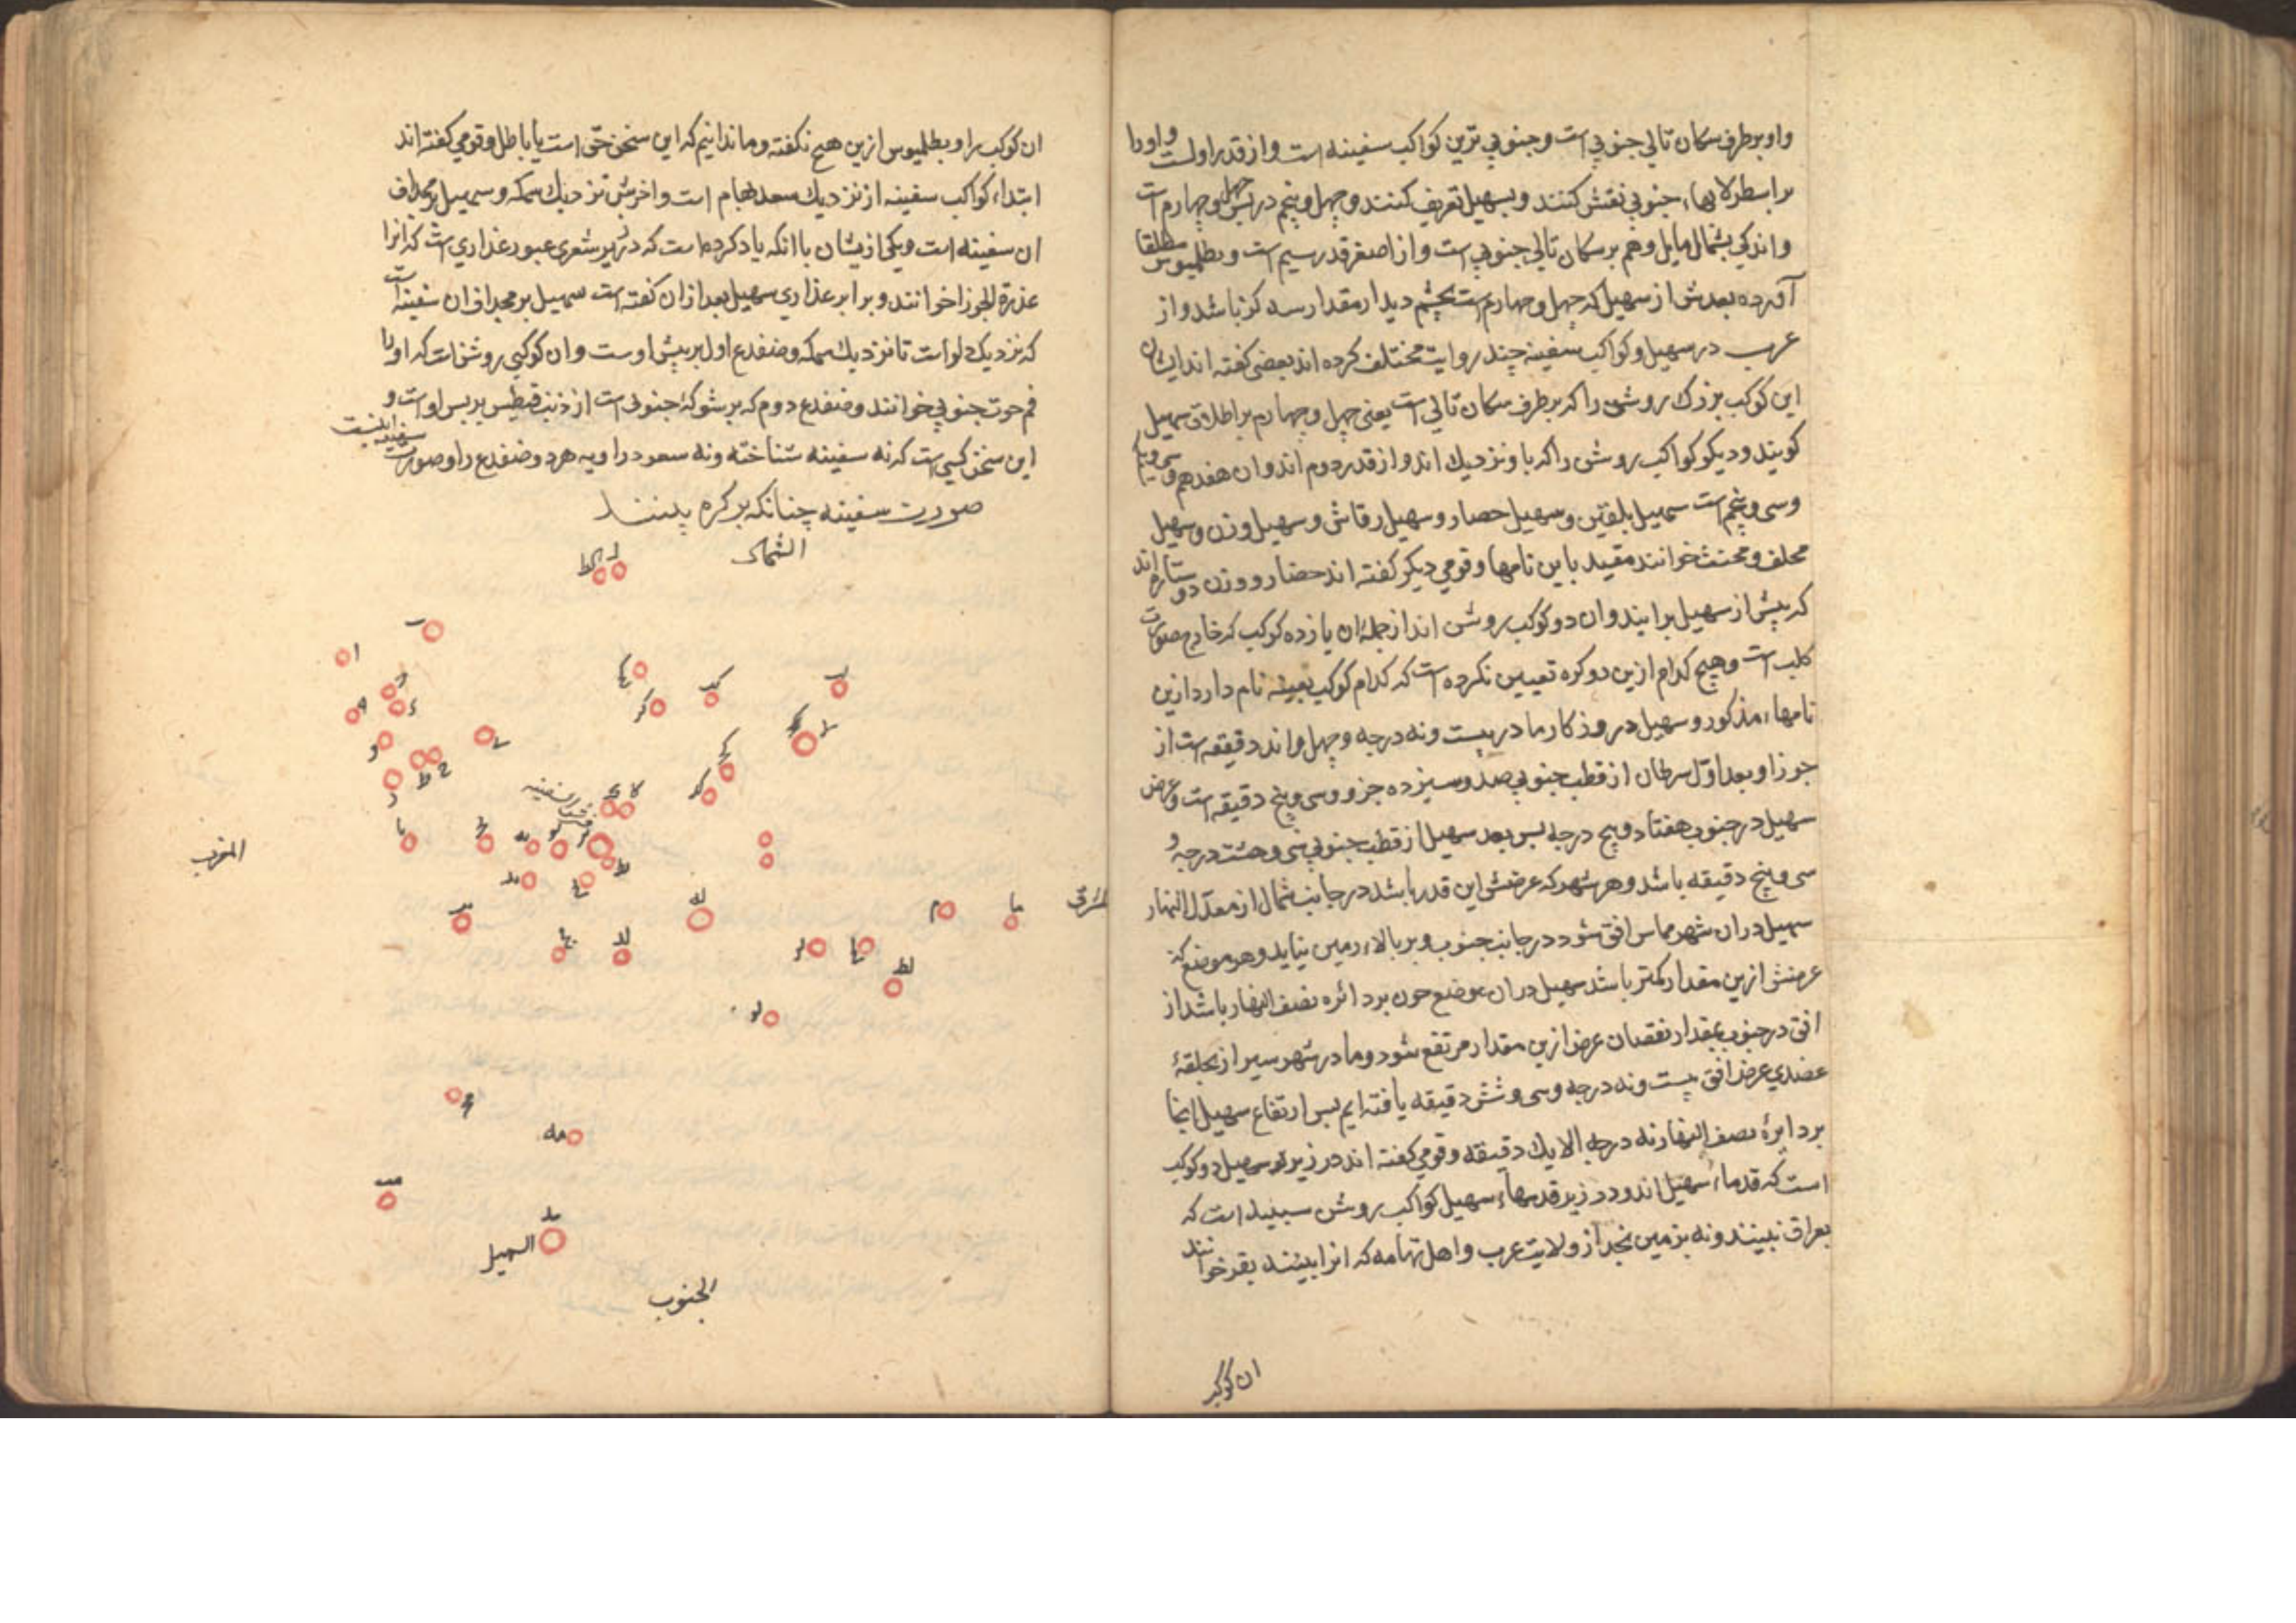 واو بر طرف سکان تالی جنوبی است و جنوبی ترین کواکب سفینه است و از قدر اولست و او را
بر اسطرلابهاء جنوبی نقش کنند و بسهیل تعریف کنند و چهل و پنجم در پس چهل و چهارم است
و اندکی بشمال مایل و هم بر سکان تالی جنوبی است و از اصغر قدر سیم است و بطلمیوس مطلقا
آورده بعدش از سهیل که چهل و چهارم است بچشم دیدار مقدار سه کز باشد و از
عرب در سهیل و کواکب سفینه چند روایت مختلف کرده اند بعضی کفته اند ایشان
این کوکب بزرك روشن را که بر طرف سکان تالی است یعنی چهل و چهارم بر اطلاق سهیل
کویند و دیکر کواکب روشن را که با و نزدیك اند و از قدر دوم اند و ان هفدهم و سی و یکم
و سی و پنجم است سهیل بلقین و سهیل حضار و سهیل رقاش و سهیل وزن و سهیل
محلف و محنث خوانند مقید باین نامها و قومی دیکر کفته اند حضار و وزن دو ستاره اند
که پیش از سهیل برایند و ان دو کوکب روشن اند از جمله ان یازده کوکب که خارج صورت
کلب است و هیچ کدام ازین دو کره تعیین نکرده است که کدام کوکب بعینه نام دارد ازین
نامهاء مذکور و سهیل در روزکار ما در بیست و نه درجه و چهل و اند دقیقه است از
جوزا و بعد اول سرطان از قطب جنوبی صد و سیزده جزو و سی و پنج دقیقه است و عرض
سهیل در جنوب هفتاد و پنج درجه بس بعد سهیل از قطب جنوبی سی و هشت درجه و
سی و پنج دقیقه باشد و هر شهر که عرضش این قدر باشد در جانب شمال از معدل النهار
سهیل در ان شهر مماس افق شود در جانب جنوب و بر بالاء زمین نیاید و هر موضع که
عرضش ازین مقدار کمتر باشد سهیل در ان موضع چون بر دائره نصف النهار باشد از
افق در جنوب بمقدار نقصان عرض ازین مقدار مرتفع شود و ما در شهر سیراز بحلقۀ
عضدی عرض افق بیست و نه درجه و سی و شش دقیقه یافته ایم بس ارتفاع سهیل اینجا
بر دایرۀ نصف النهار نه درجه الا یك دقیقه و قومی کفته اند در زیر سهیل دو کوکب
است که قدماء سهیل اند و در زیر قدمهاء سهیل کواکب روشن سبید است که
بعراق نبینند و نه بزمین نجد از ولایت عرب و اهل تهامه که انرا بینند بقر خوانند
ان کوکب
ان کوکب را و بطلمیوس ازین هیچ نکفته و ما ندانیم که این سخن حق است یا باطل و قومی کفته اند
ابتداء کواکب سفینه از نزدیك سعد بهام است و اخرش نزدیك سمکه و سهیل بر مجداف
ان سفینه است و یکی ازیشان با انکه یاد کرده است که در زیر شعری عبور عذاری است که انرا
عذرة الجوزا خوانند و برابر عذاری سهیل بعد ازان کفته است سهیل بر مجداف ان سفینه است
که نزدیك دلو است تا نزدیك سمکه و ضفدع اول بر پیش اوست و ان کوکبی روشن است که او را
فم حوت جنوبی خوانند و ضفدع دوم که بر شوکۀ جنوبی است از ذنب قیطس بر پس او است و
این سخن کسی است که نه سفینه شناخته و نه سعود را و نه هر دو ضفدع را و صورت سفینه اینست
صورت سفینه چنانکه بر کره بینند
الشمال
المغرب
المشرق
السهیل
الجنوب